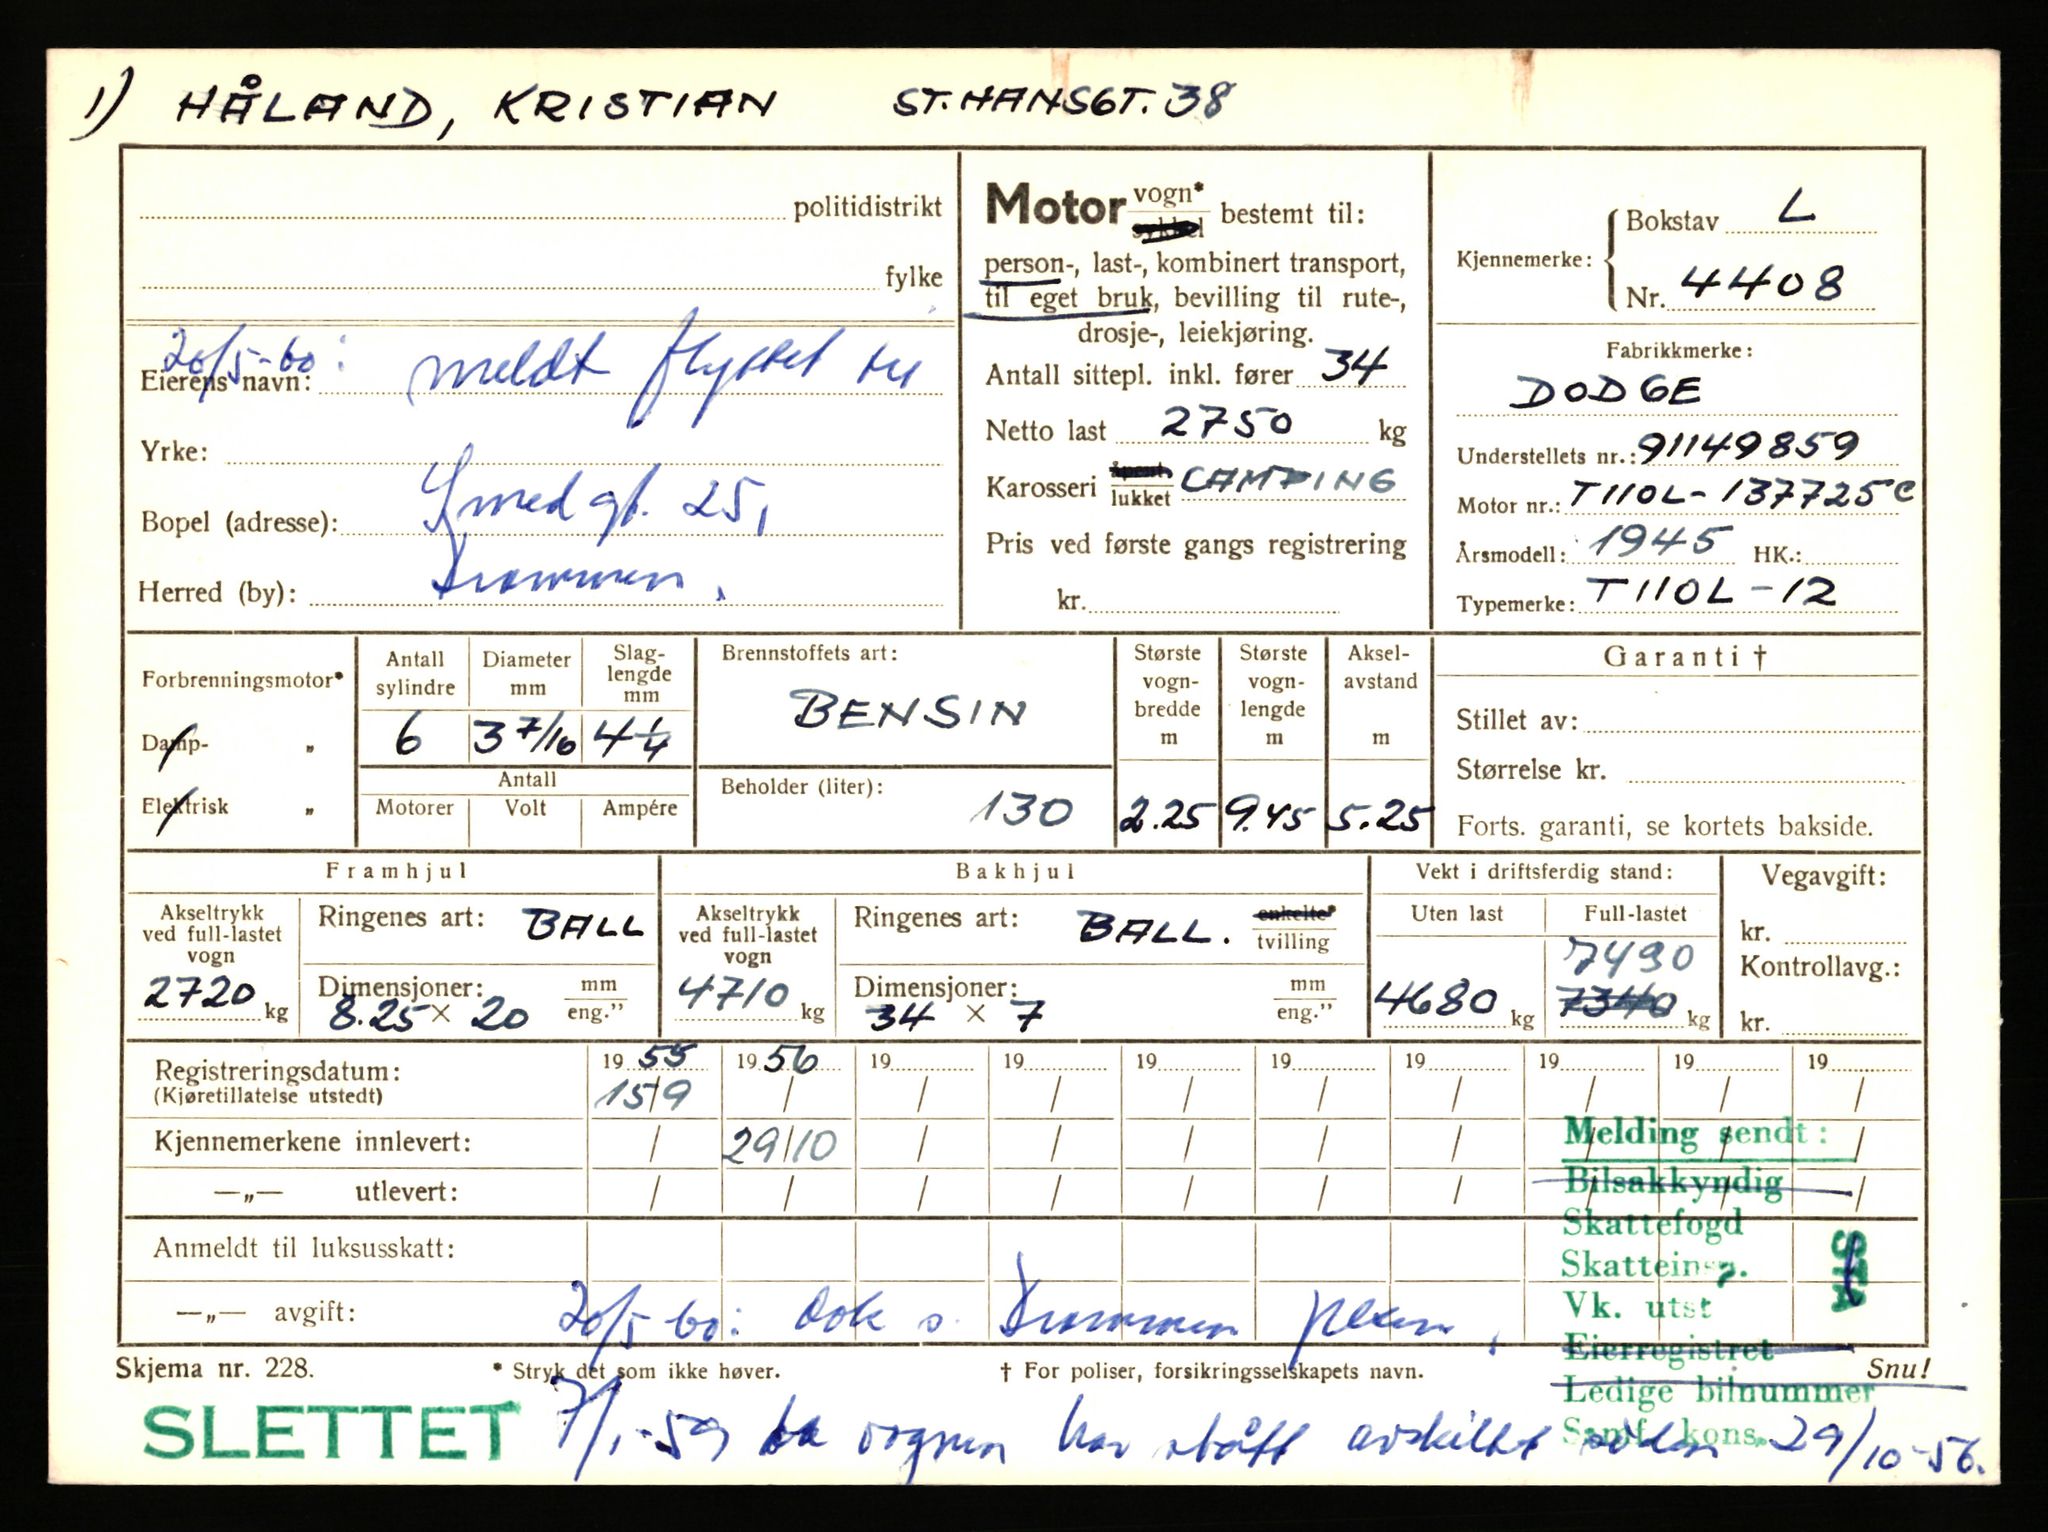 1) HÅLAND, KRISTIAN ST.HANSGT. 38
politidistrikt
fylke
20/5-60: meldt flyttet til
Eierens navn:
Yrke:
Bopel (adresse): Smedgt. 25,
Herred (by): Drammen.
Motor vogn* sykkel bestemt til:
person-, last-, kombinert transport,
til eget bruk, bevilling til rute-,
drosje-, leiekjøring.
Antall sittepl. inkl. fører 34
Netto last 2750 kg
Karosseri åpent lukket CAMPING
Pris ved første gangs registrering
kr.
Kjennemerke: Bokstav L
Nr. 4408
Fabrikkmerke:
DODGE
Understellets nr.: 91149859
Motor nr.: T110L-137725C
Årsmodell: 1945 HK.:
Typemerke: T110L-12
Forbrenningsmotor*
Damp- „
Elektrisk „
Antall sylindre 6
Diameter mm 3 7/16
Slaglengde mm 4 1/4
Antall
Motorer Volt Ampére
Brennstoffets art:
BENSIN
Beholder (liter): 130
Største vognbredde m 2.25
Største vognlengde m 9.45
Akselavstand m 5.25
Garanti †
Stillet av:
Størrelse kr.
Forts. garanti, se kortets bakside.
Framhjul
Akseltrykk ved full-lastet vogn 2720 kg
Ringenes art: BALL
Dimensjoner: mm eng."
8.25 × 20
Bakhjul
Akseltrykk ved full-lastet vogn 4710 kg
Ringenes art: BALL. enkelte* tvilling
Dimensjoner: mm eng."
34 × 7
Vekt i driftsferdig stand:
Uten last 4680 kg
Full-lastet 7490 7340 kg
Vegavgift:
kr.
Kontrollavg.:
kr.
Registreringsdatum: 19 55 19 56 19 19 19 19 19 19 19 19
(Kjøretillatelse utstedt) 15/9 / / / / / / / / /
Kjennemerkene innlevert: / 29/10 / / / / / / / /
—„— utlevert: / / / / / / / / / /
Anmeldt til luksusskatt:
—„— avgift: 20/5-60: Dok s. Drammen
Melding sendt:
Bilsakkyndig
Skattefogd
Skatteinsp.
Vk. utst
Eierregistret
Ledige bilnummer
Samf. kons.
Skjema nr. 228. * Stryk det som ikke høver. † For poliser, forsikringsselskapets navn. Snu!
SLETTET 7/1-59 da vognen har stått avskiltet siden 29/10-56.